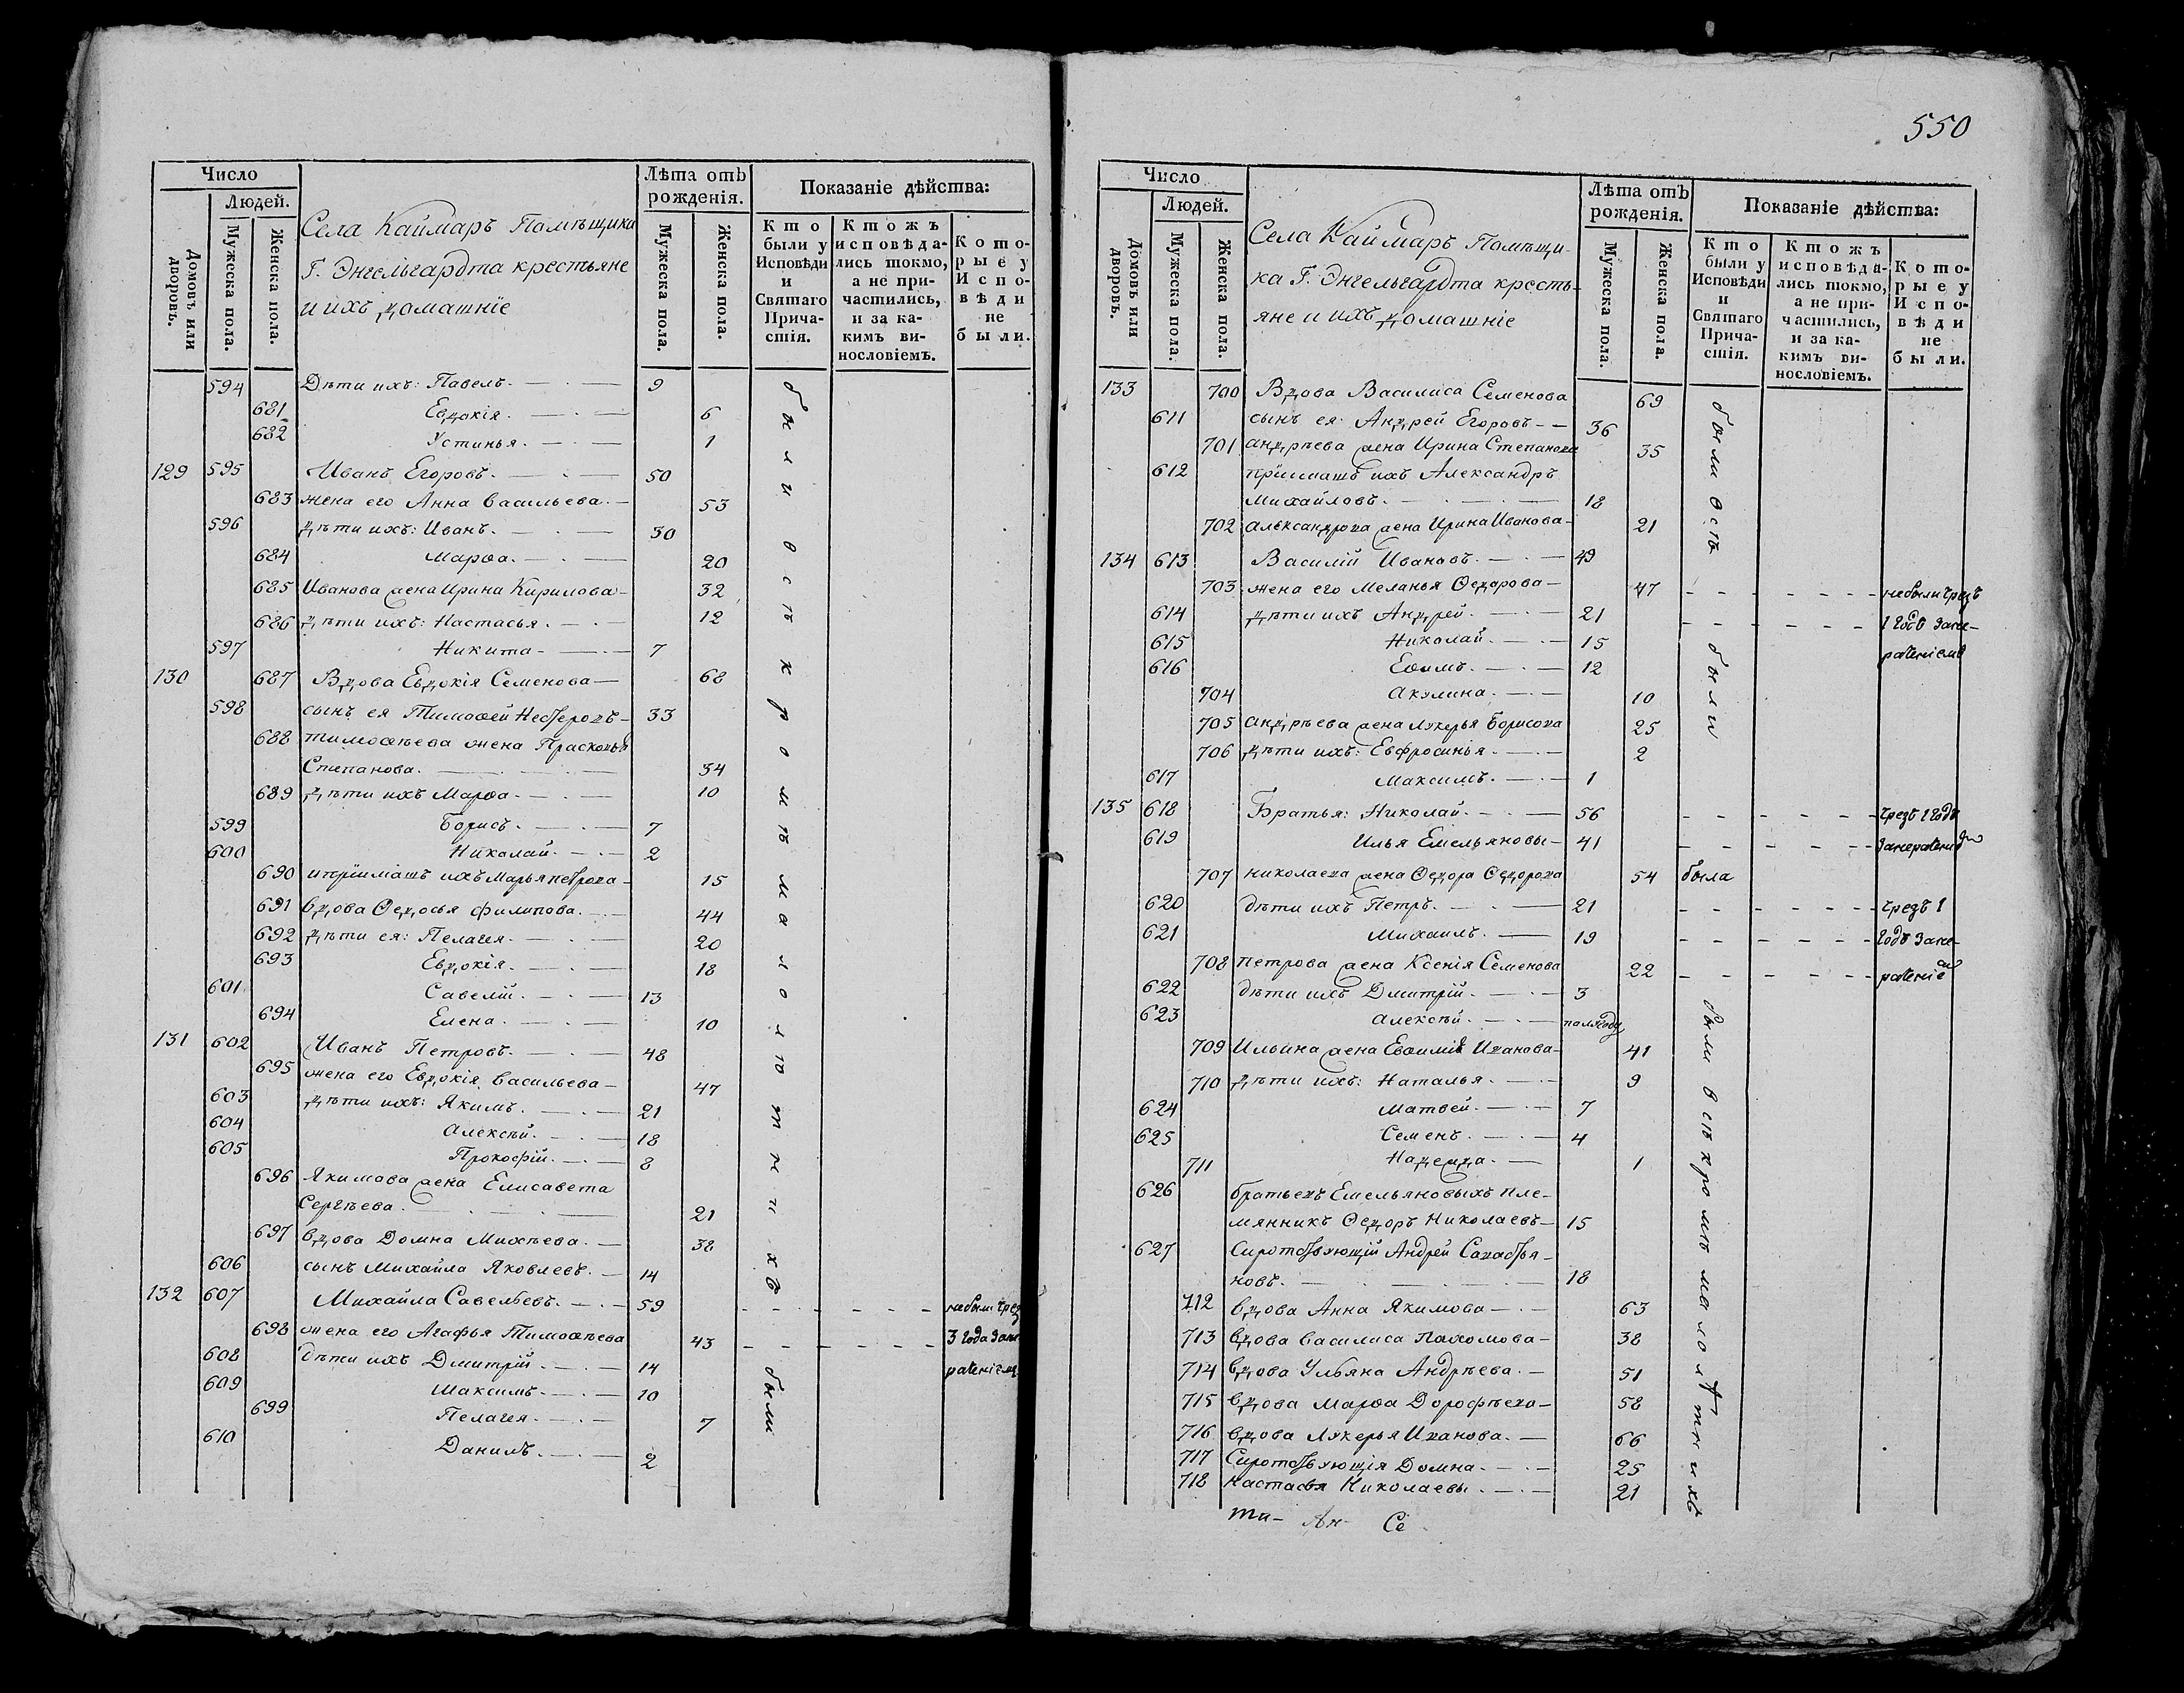 550
Число
Людей.
Домовъ или дворовъ.
Мужеска пола.
Женска пола.
Села Каймаръ Помѣщика
Г. Энгельгардта крестьяне
и ихъ домашніе
Лѣта отъ рожденія.
Мужеска пола.
Женска пола.
Показаніе дѣйства:
Кто были у Исповѣди и Святаго Причастія.
Ктожъ исповѣдались токмо, а не причастились, и за какимъ винословіемъ.
Которые у Исповѣди не были.
594 Дѣти ихъ: Павелъ. 9
681 Евдокія. 6
682 Устинья. 1
129 595 Иванъ Егоровъ. 50
683 жена его Анна Васильева. 53
596 дѣти ихъ: Иванъ. 30
684 Марѳа. 20
685 Иванова жена Ирина Кирилова 32
686 дѣти ихъ: Настасья. 12
597 Никита 7
130 687 Вдова Евдокія Семенова 68
598 сынъ ея Тимоѳей Несторовъ 33
688 Тимоѳѣева жена Прасковья
Степанова. 34
689 дѣти ихъ Марѳа. 10
599 Борисъ. 7
600 Николай. 2
690 и пріимашъ ихъ Марья Петрова 15
691 вдова Ѳедосья Филипова. 44
692 дѣти ея: Пелагея. 20
693 Евдокія. 18
601 Савелій. 13
694 Елена. 10
131 602 Иванъ Петровъ. 48
695 жена его Евдокія Васильева 47
603 дѣти ихъ: Якимъ. 21
604 Алексѣй. 18
605 Прокофій. 8
696 Якимова жена Елисавета
Сергѣева. 21
697 вдова Домна Михѣева. 38
606 сынъ Михайла Яковлевъ. 14
были всѣ кромѣ малолѣтнихъ
132 607 Михайла Савельевъ. 59 не были чрез
698 жена его Агафья Тимоѳѣева 43 3 года за не
608 дѣти ихъ Дмитрій. 14 раченіем
609 Максимъ. 10
699 Пелагея. 7
610 Данилъ. 2
были
Число
Людей.
Домовъ или дворовъ.
Мужеска пола.
Женска пола.
Села Каймаръ Помѣщи-
ка Г. Энгельгардта кресть-
яне и ихъ домашніе
Лѣта отъ рожденія.
Мужеска пола.
Женска пола.
Показаніе дѣйства:
Кто были у Исповѣди и Святаго Причастія.
Ктожъ исповѣдались токмо, а не причастились, и за какимъ винословіемъ.
Которые у Исповѣди не были.
133 700 Вдова Василиса Семенова 69
611 сынъ ея: Андрей Егоровъ 36
701 Андрѣева жена Ирина Степанова 35
612 пріимашъ ихъ Александръ
Михайловъ. 18
702 Александрова жена Ирина Иванова 21
были всѣ
134 613 Василій Ивановъ. 49
703 жена его Меланья Ѳедорова 47 не были чрезъ
614 дѣти ихъ Андрей. 21 1 годъ за не-
615 Николай. 15 раченіемъ
616 Еѳимъ. 12
704 Акулина. 10
705 Андрѣева жена Лукерья Борисова 25
706 дѣти ихъ: Евфросинья. 2
617 Максимъ. 1
были
135 618 Братья: Николай. 56 чрезъ 1 годъ
619 Илья Емельяновы 41 за нераченіем
707 Николаева жена Ѳедора Ѳедорова 54 была
620 дѣти ихъ Петръ. 21 чрезъ 1
621 Михаилъ. 19 годъ за не-
708 Петрова жена Ксенія Семенова 22 раченіем
622 дѣти ихъ Дмитрій. 3
623 Алексѣй. полугоду
709 Ильина жена Евѳимія Иванова 41
710 дѣти ихъ: Наталья. 9
624 Матвей. 7
625 Семенъ. 4
711 Надежда. 1
626 братьевъ Емельяновыхъ пле-
мянникъ Ѳедоръ Николаевъ 15
627 Сиротствующій Андрей Савастья-
новъ. 18
712 вдова Анна Якимова 63
713 вдова Василиса Пахомова 38
714 вдова Ульяна Андрѣева. 51
715 вдова Марѳа Дорофѣева 58
716 вдова Лукерья Иванова. 66
717 Сиротствующія Домна. 25
718 Настасья Николаевы. 21
были всѣ кромѣ малолѣтнихъ